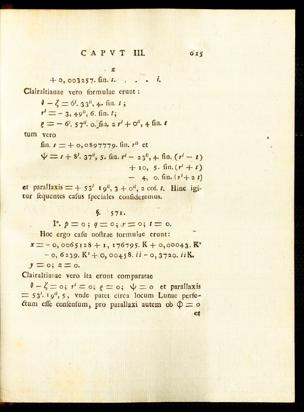 CAPVT III. 615
z
+ 0, 003257. sin. s. . . . i.
Clairaltianae vero formulae erunt:
θ — ζ = 6'. 33", 4. sin. s;
r' = — 3, 49", 6. sin. s;
ε = — 6'. 57". 0. sin. 2 r' + 0", 4 sin. s
tum vero
sin. s = + 0,0897779. sin. r" et
ψ = s + 8'. 37", 5. sin. r' — 23", 4. sin. (r' — s)
+ 10, 5. sin. (r' + s)
— 4, 0. sin. (r' + 2 s)
et parallaxis = + 53' 19", 3 + 0", 2 cos. s. Hinc igi-
tur sequentes casus speciales consideremus.
§. 571.
I°. p = 0; q = 0; r = 0; s = 0.
Hoc ergo casu nostrae formulae erunt:
x = — 0,0065128 + 1, 176795. K + 0,00043. K²
— 0, 6239. K³ + 0,00458. i i — 0,3720. i i K.
y = 0; z = 0.
Clairaltianae vero ita erunt comparatae
θ — ζ = 0; r' = 0; ε = 0; ψ = 0 et parallaxis
= 53'. 19", 5, vnde patet circa locum Lunae perfe-
ctum esse consensum, pro parallaxi autem ob Φ = 0
et